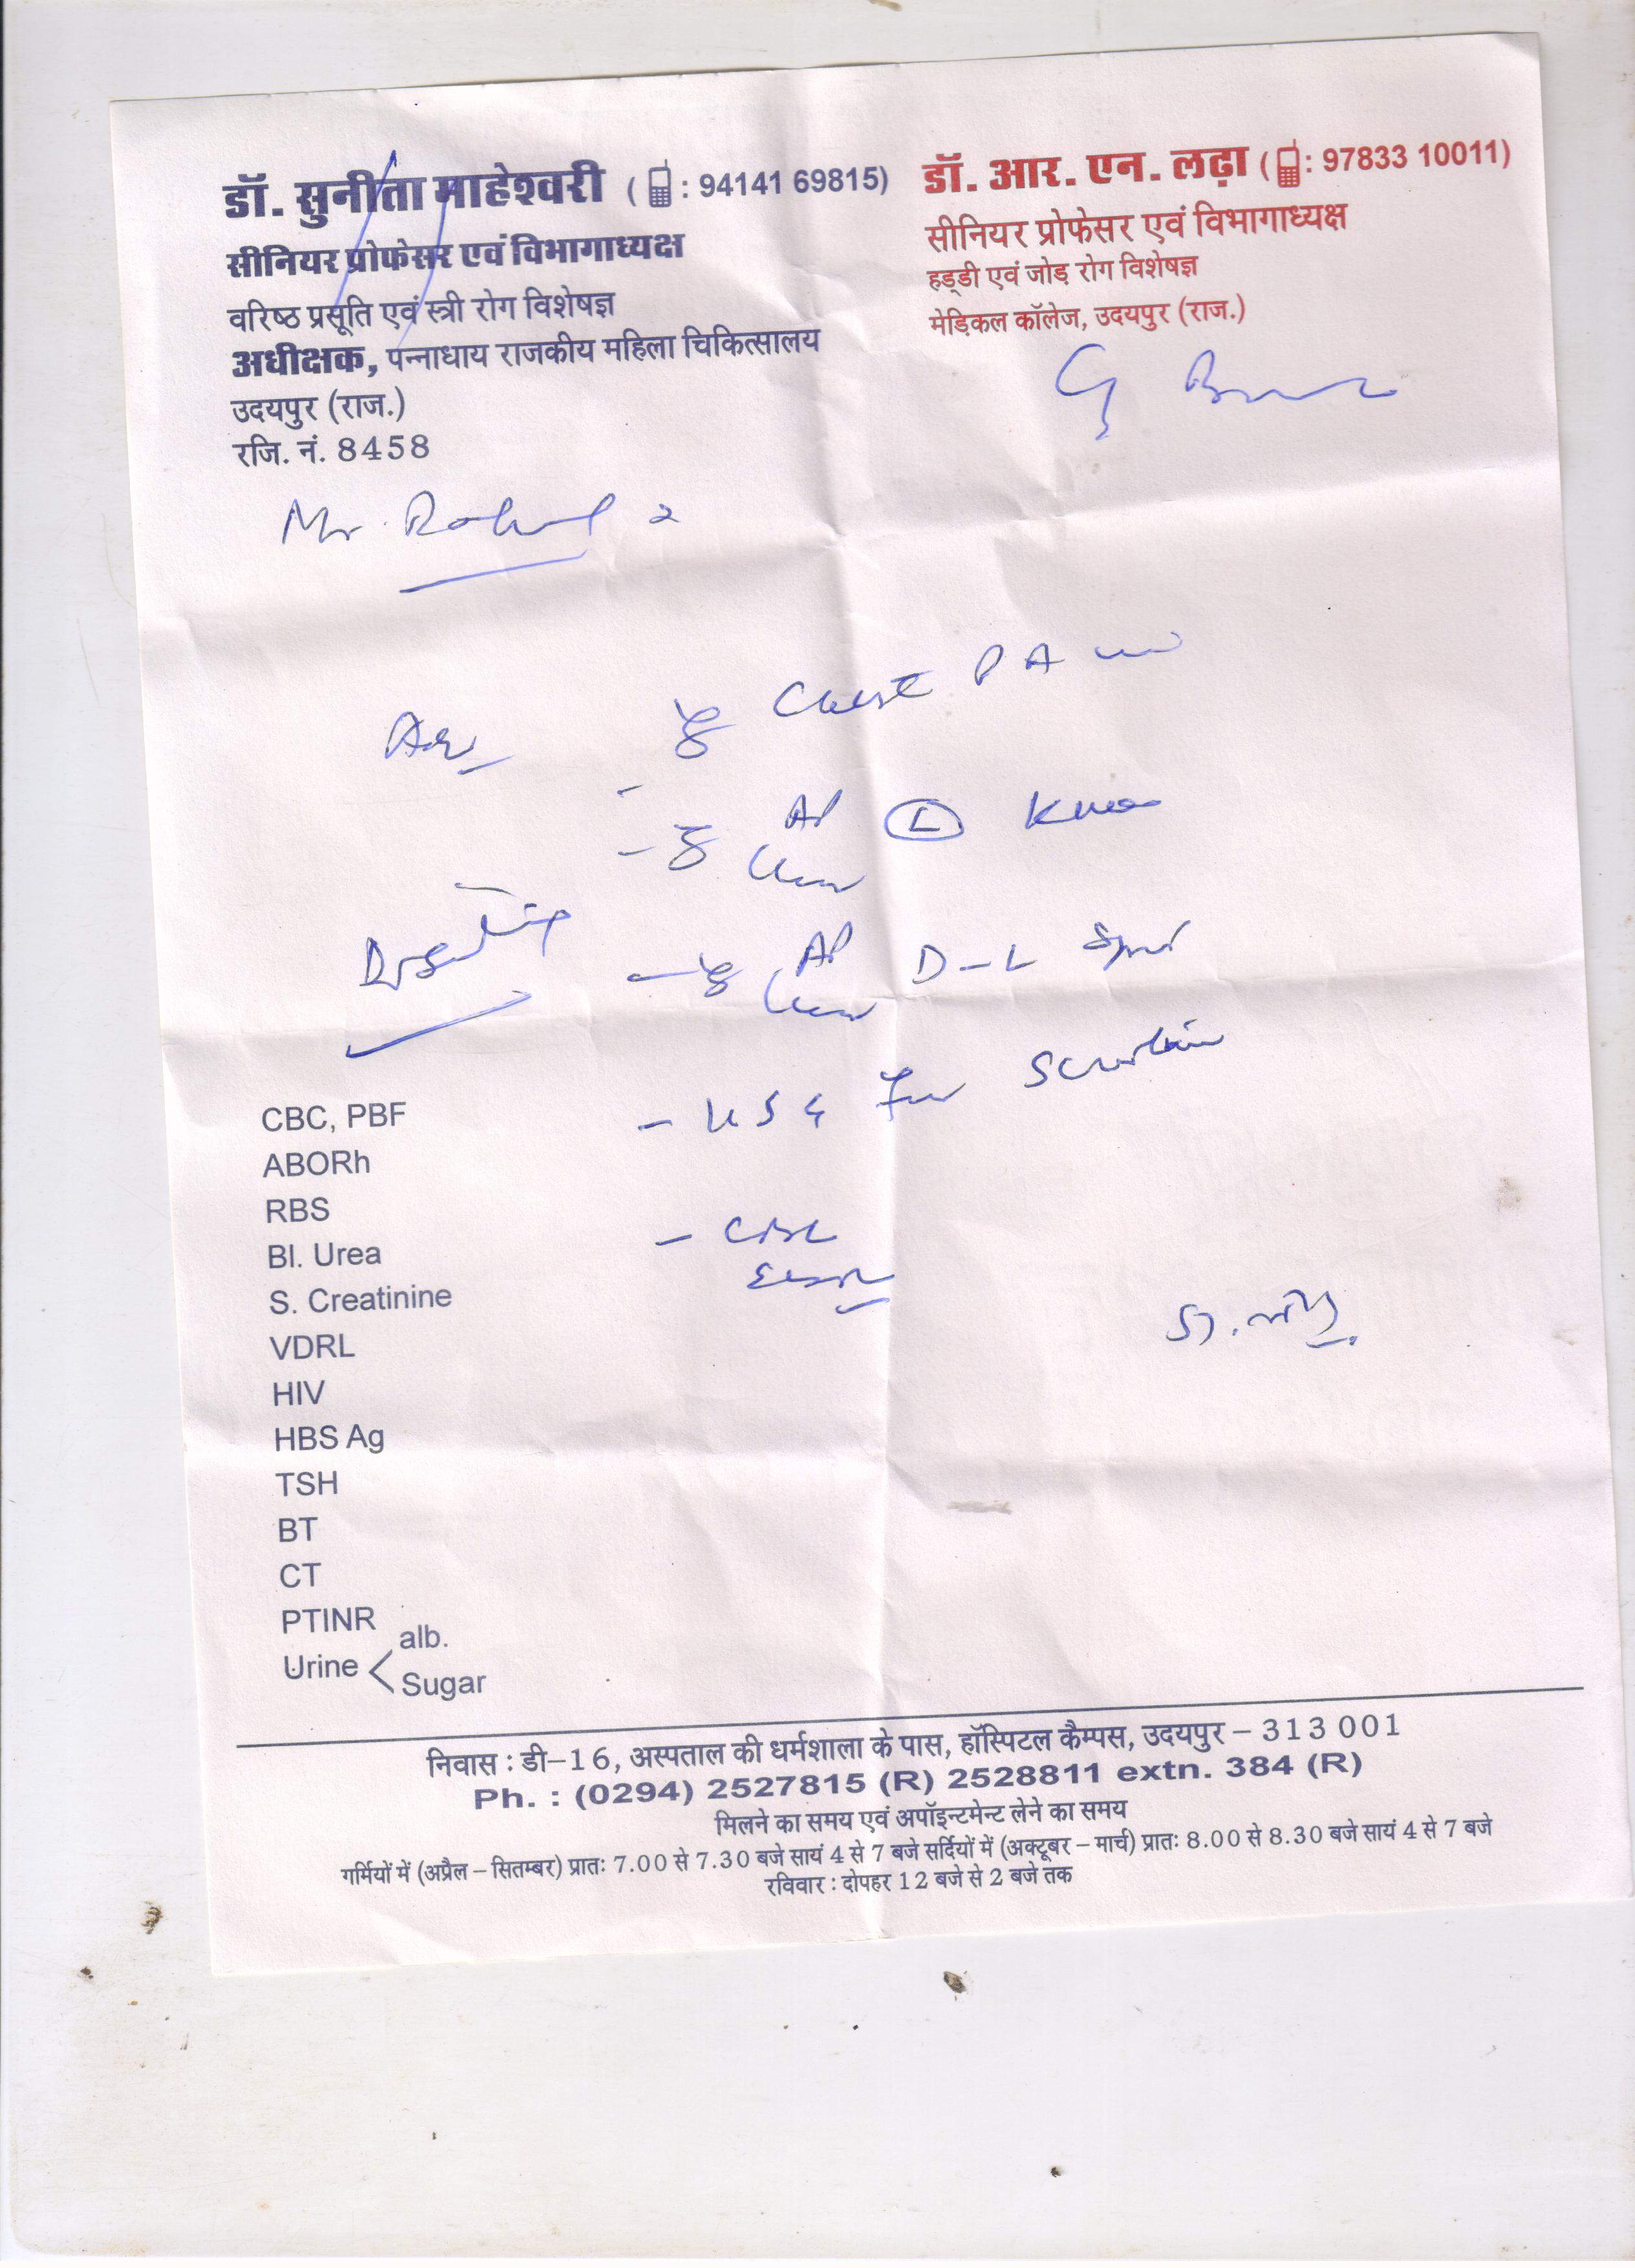 डॉ. सुनीता माहेश्वरी ( : 94141 69815)
सीनियर प्रोफेसर एवं विभागाध्यक्ष
वरिष्ठ प्रसूति एवं स्त्री रोग विशेषज्ञ
अधीक्षक, पन्नाधाय राजकीय महिला चिकित्सालय
उदयपुर (राज.)
रजि. नं. 8458
डॉ. आर. एन. लढ़ा ( : 97833 10011)
सीनियर प्रोफेसर एवं विभागाध्यक्ष
हड्डी एवं जोड़ रोग विशेषज्ञ
मेड़िकल कॉलेज, उदयपुर (राज.)
Mr. Rahul
Adv
Chest PA
AP L Knee
AP D-L Spine
- USG for
- CBC
ESR
CBC, PBF
ABORh
RBS
Bl. Urea
S. Creatinine
VDRL
HIV
HBS Ag
TSH
BT
CT
PTINR
Urine < alb.
Sugar
निवास : डी-16, अस्पताल की धर्मशाला के पास, हॉस्पिटल कैम्पस, उदयपुर – 313 001
Ph. : (0294) 2527815 (R) 2528811 extn. 384 (R)
मिलने का समय एवं अपॉइन्टमेन्ट लेने का समय
गर्मियों में (अप्रैल – सितम्बर) प्रातः 7.00 से 7.30 बजे सायं 4 से 7 बजे सर्दियों में (अक्टूबर – मार्च) प्रातः 8.00 से 8.30 बजे सायं 4 से 7 बजे
रविवार : दोपहर 12 बजे से 2 बजे तक